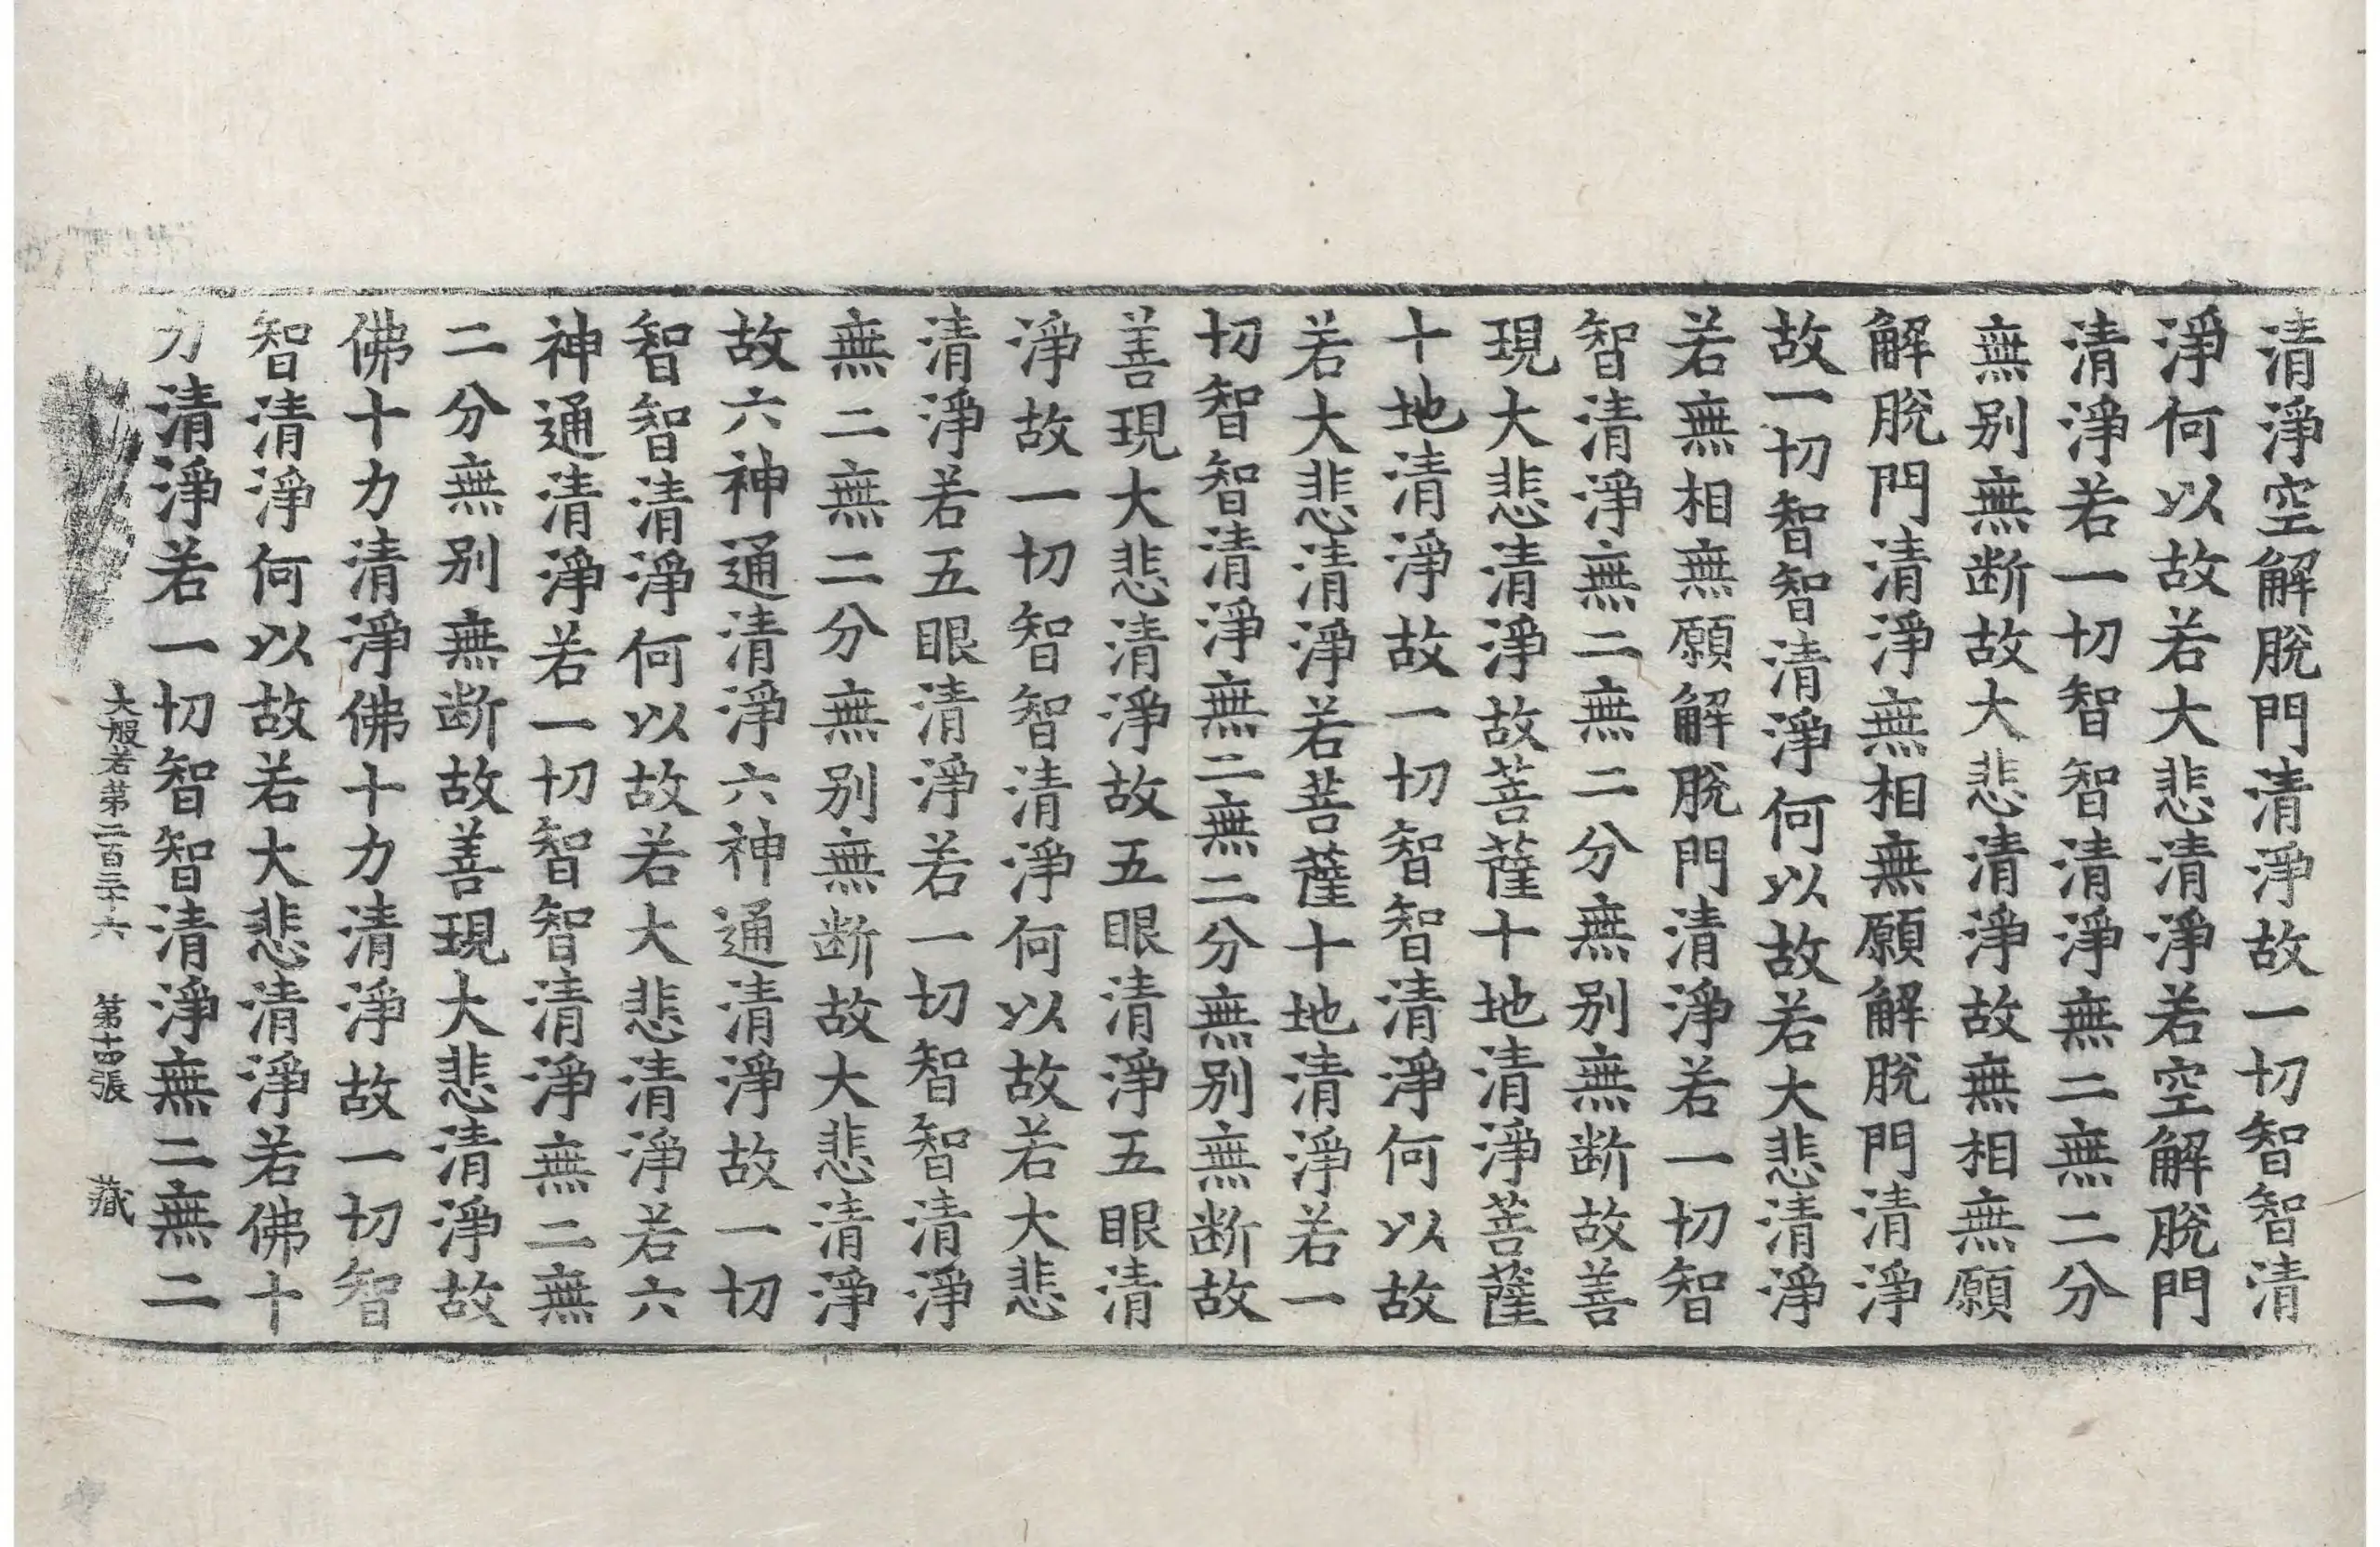 清淨空解脫門清淨故一切智智清
淨何以故若大悲清淨若空解脫門
清淨若一切智智清淨無二無二分
無别無断故大悲清淨故無相無願
解脫門清淨無相無願解脫門清淨
故一切智智清淨何以故若大悲清淨
若無相無願解脫門清淨若一切智
智清淨無二無二分無别無断故善
現大悲清淨故菩薩十地清淨菩薩
十地清淨故一切智智清淨何以故
若大悲清淨若菩薩十地清淨若一
切智智清淨無二無二分無别無断故
善現大悲清淨故五眼清淨五眼清
淨故一切智智清淨何以故若大悲
清淨若五眼清淨若一切智智清淨
無二無二分無别無断故大悲清淨
故六神通清淨六神通清淨故一切
智智清淨何以故若大悲清淨若六
神通清淨若一切智智清淨無二無
二分無别無断故善現大悲清淨故
佛十力清淨佛十力清淨故一切智
智清淨何以故若大悲清淨若佛十
力清淨若一切智智清淨無二無二
大般若第二百三十六 第十四張 藏